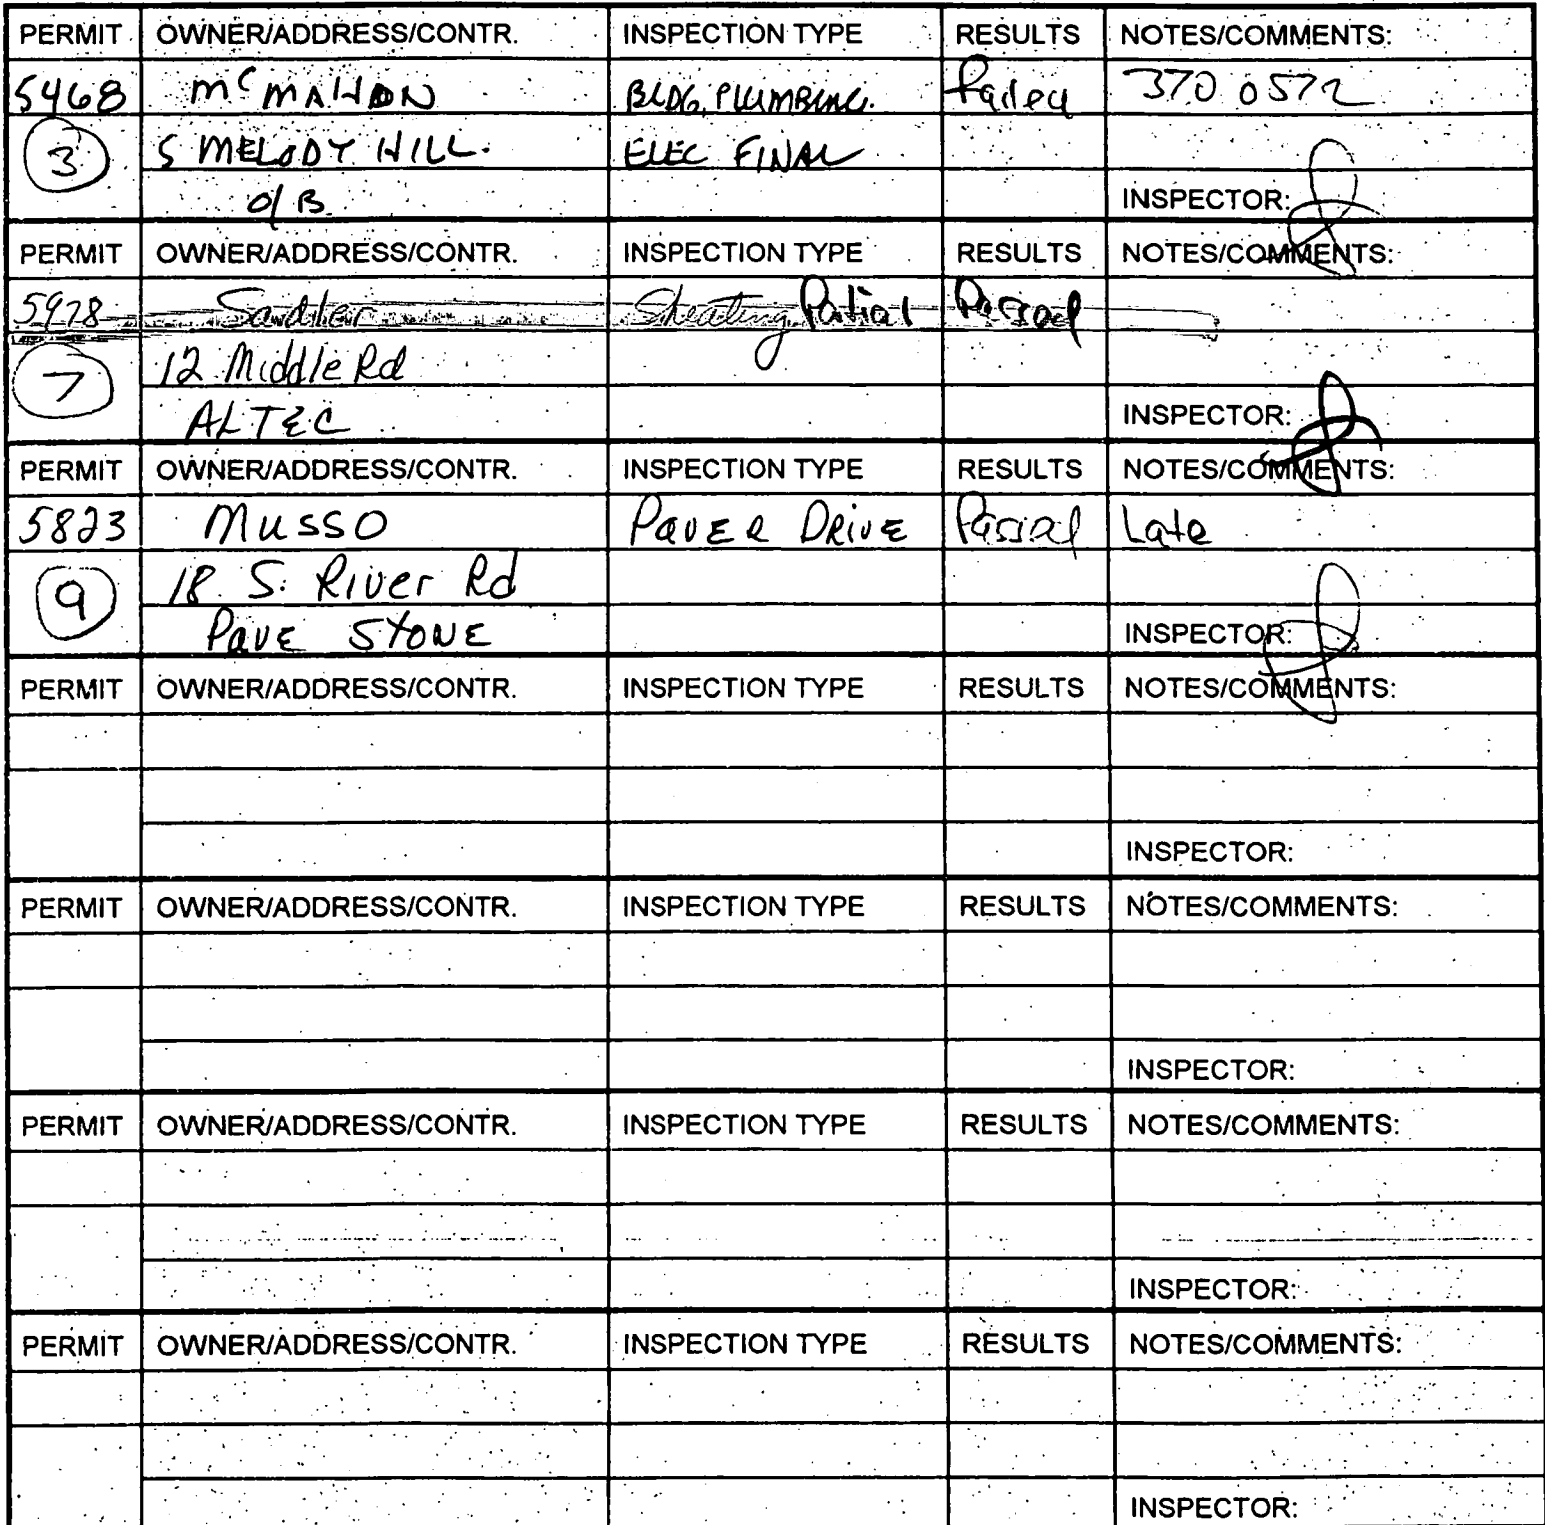 PERMIT OWNER/ADDRESS/CONTR. INSPECTION TYPE RESULTS NOTES/COMMENTS:
5468 McMAHON BLDG, PLUMBING. Failed 370 0572
3 5 MELODY HILL. ELEC FINAL
O/B INSPECTOR:
PERMIT OWNER/ADDRESS/CONTR. INSPECTION TYPE RESULTS NOTES/COMMENTS:
5978 Sadler Sheating Partial Passed
7 12 Middle Rd
ALTEC INSPECTOR:
PERMIT OWNER/ADDRESS/CONTR. INSPECTION TYPE RESULTS NOTES/COMMENTS:
5823 Musso PAVER DRIVE Passed Late
9 18 S. River Rd
PAVE STONE INSPECTOR:
PERMIT OWNER/ADDRESS/CONTR. INSPECTION TYPE RESULTS NOTES/COMMENTS:
INSPECTOR:
PERMIT OWNER/ADDRESS/CONTR. INSPECTION TYPE RESULTS NOTES/COMMENTS:
INSPECTOR:
PERMIT OWNER/ADDRESS/CONTR. INSPECTION TYPE RESULTS NOTES/COMMENTS:
INSPECTOR:
PERMIT OWNER/ADDRESS/CONTR. INSPECTION TYPE RESULTS NOTES/COMMENTS:
INSPECTOR: